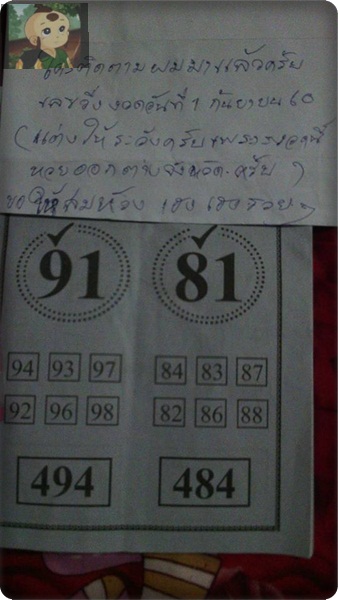 ติดตามผมมาแล้วครับ
เลขวิ่งงวดวันที่ 1 กันยายน 60
(แต่งให้ระวังครับเพราะงวดนี้
หวยออกต่างจังหวัด. ครับ)
ขอให้สมหวัง เฮง เฮง รวยๆ
91 81
94 93 97 84 83 87
92 96 98 82 86 88
494 484